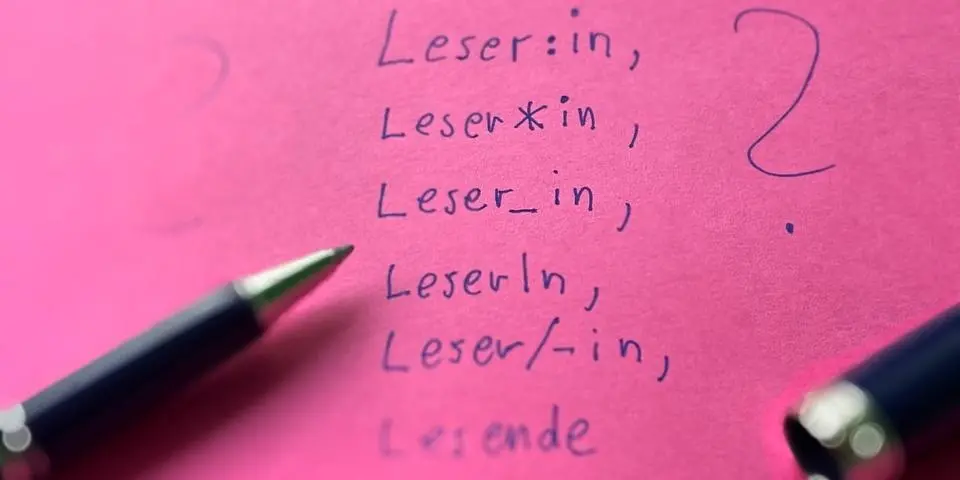 Leser:in,
Leser*in,
Leser_in,
LeserIn,
Leser/-in,
Lesende
?